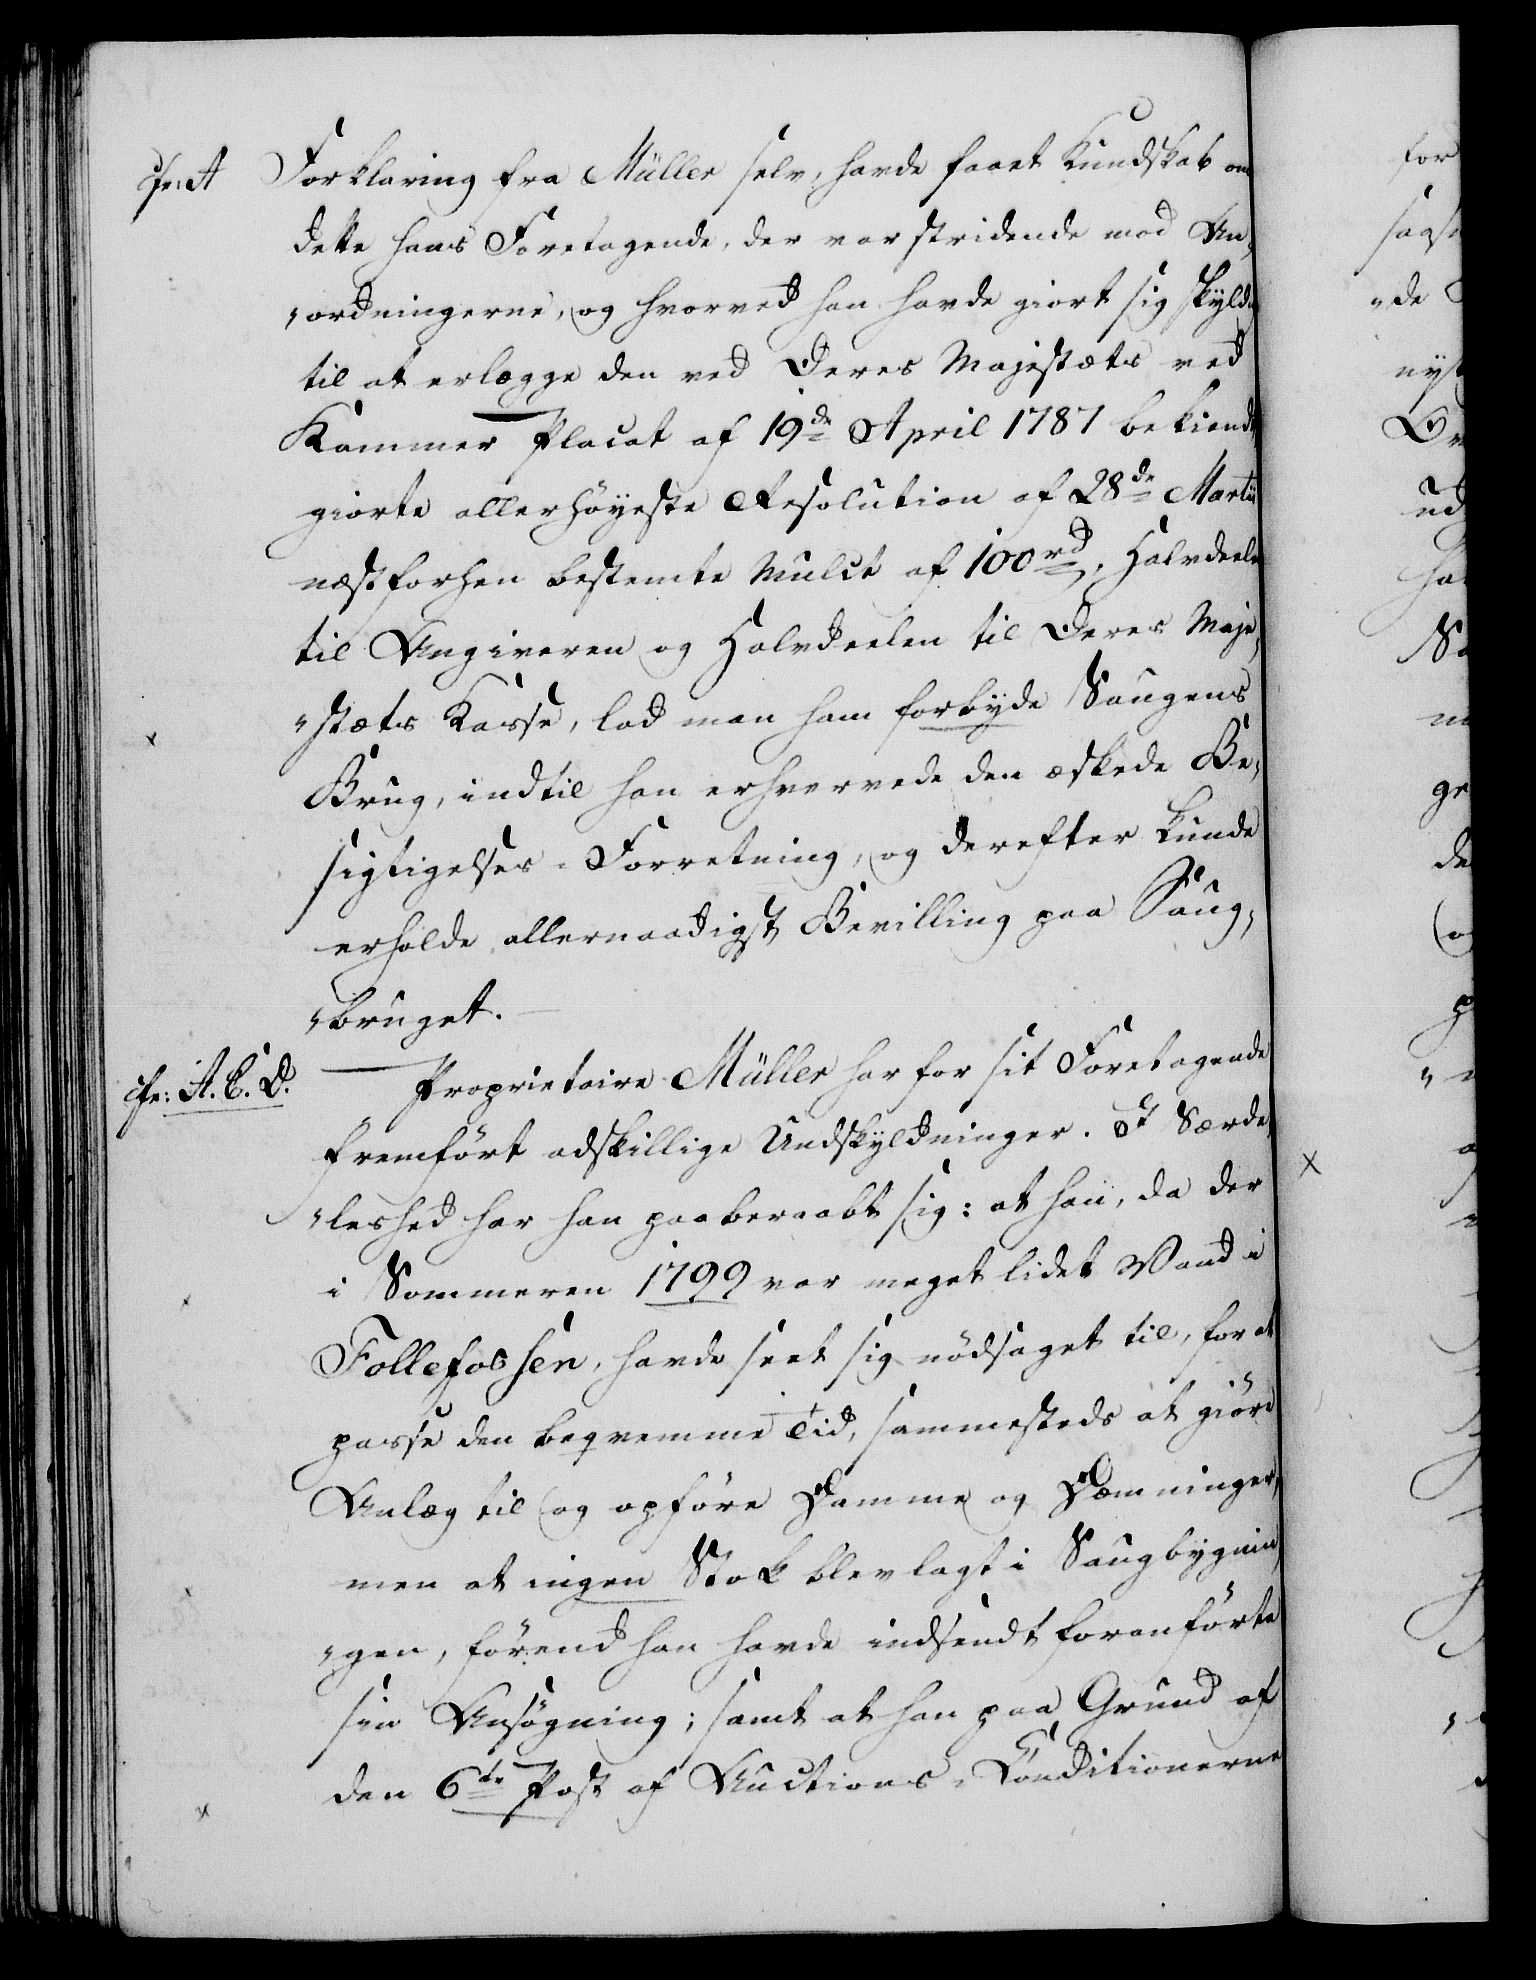 cfr: A
Forklaring fra Müller selv, havde faaet Kundskab om
dette hans Foretagende, der var stridende mod An-
"ordningerne, og hvorved han havde giort sig skyldig
til at erlægge den ved Deres Majestæts ved
Kammer Placat af 19de April 1787 bekiendt
giorte allerhöyeste Resolution af 28de Martii
næstforhen bestemte Mulct af 100 rd, Halvdeelen
til Angiveren og Halvdeelen til Deres Maje-
"stæts Kasse, lod man ham forbyde Saugens
Brug, indtil han erhvervede den æskede Be-
sigtigelses-Forretning, og derefter kunde
erholde allernaadigst Bevilling paa Saug-
"bruget.
cfr: A. C. D.
Proprietaire Müller har for sit Foretagende
fremfört adskillige Undskyldninger. I Særde-
"leshed har han paaberaabt sig: at han, da der
i Sommeren 1799 var meget lidet Vand i
Follefossen, havde seet sig nödsaget til, for at
passe den beqvemme Tid, sammesteds at giöre
Anlæg til og opföre Damme og Dæmninger,
men at ingen Stok blev lagt i Saugbygnin-
"gen, förend han havde indsendt foranförte
sin Ansögning; samt at han paa Grund af
den 6te Post af Auctions-Conditionerne
for
"de
nyt
ud
ha
Sa
ge
de
p